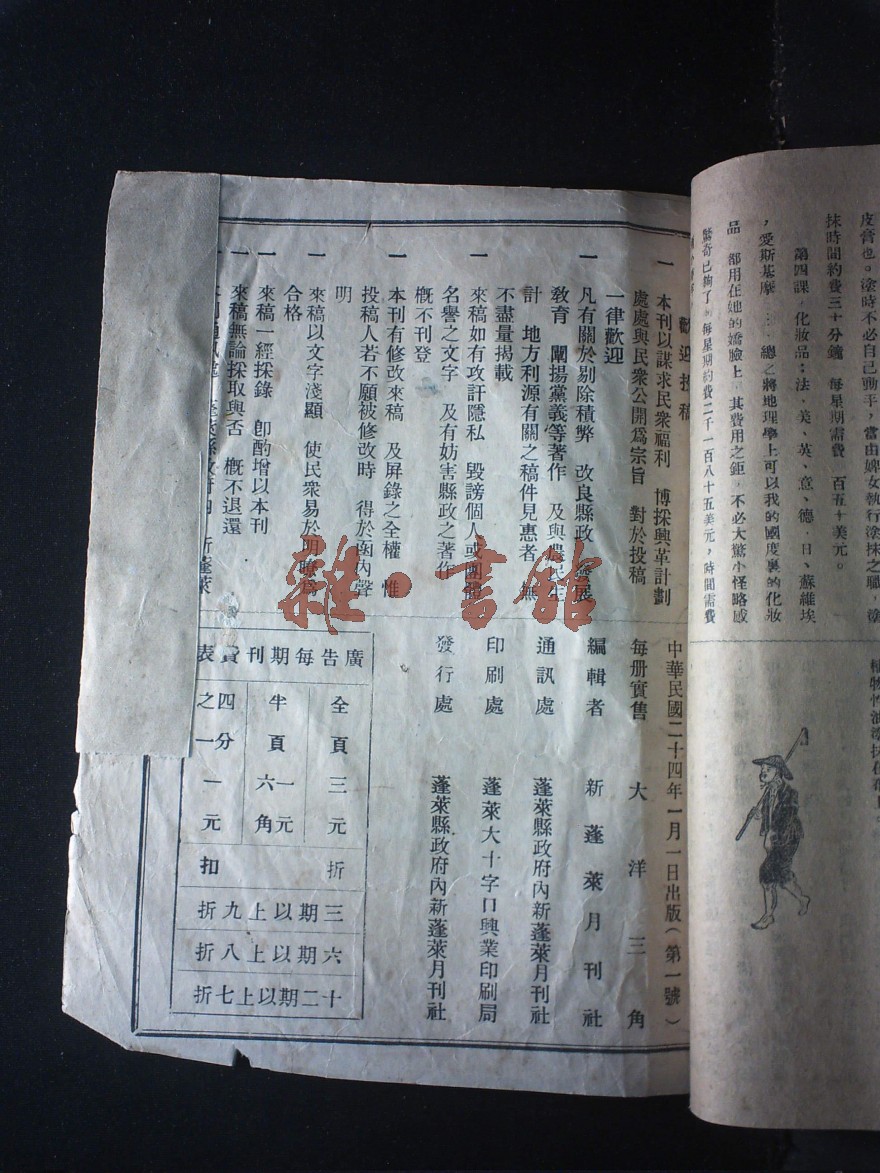 皮膏也。塗時不必自己動手，當由婢女執行塗抹之職，塗
抹時間約費三十分鐘　每星期需費　百五十美元。
第四課，化妝品：法．美、英、意、德．日、蘇維埃
，愛斯基摩……總之將地理學上可以我的國度裏的化妝
品　都用在她的嬌臉上　其費用之鉅，不必大驚小怪略感
驚奇已夠了。每星期約費二千一百八十五美元，時間需費
歡迎投稿
一　本刊以謀求民衆福利　博採興革計劃
處處與民衆公開爲宗旨　對於投稿
一律歡迎
一　凡有關於剔除積弊　改良縣政　發展
教育　闡揚黨義等著作　及與農民生
計　地方利源有關之稿件見惠者　無
不盡量揭載
一　來稿如有攻訐隱私　毀謗個人或團體
名譽之文字　及有妨害縣政之著作
概不刊登
一　本刊有修改來稿　及屏錄之全權　惟
投稿人若不願被修改時　得於函內聲
明
一　來稿以文字淺顯　使民衆易於明瞭爲
合格
一　來稿一經採錄　卽酌增以本刊
一　來稿無論採取與否　概不退還
蓬萊縣政府內　新蓬萊
中華民國二十四年一月一日出版（第一號）
每册實售　大洋三角
編輯者　新蓬萊月刊社
通訊處　蓬萊縣政府內新蓬萊月刊社
印刷處　蓬萊大十字口興業印刷局
發行處　蓬萊縣政府內新蓬萊月刊社
廣告每期刊費表
全頁　三元
半頁　一元六角
四分之一　一元
折扣
三期以上九折
六期以上八折
十二期以上七折
雜·書館